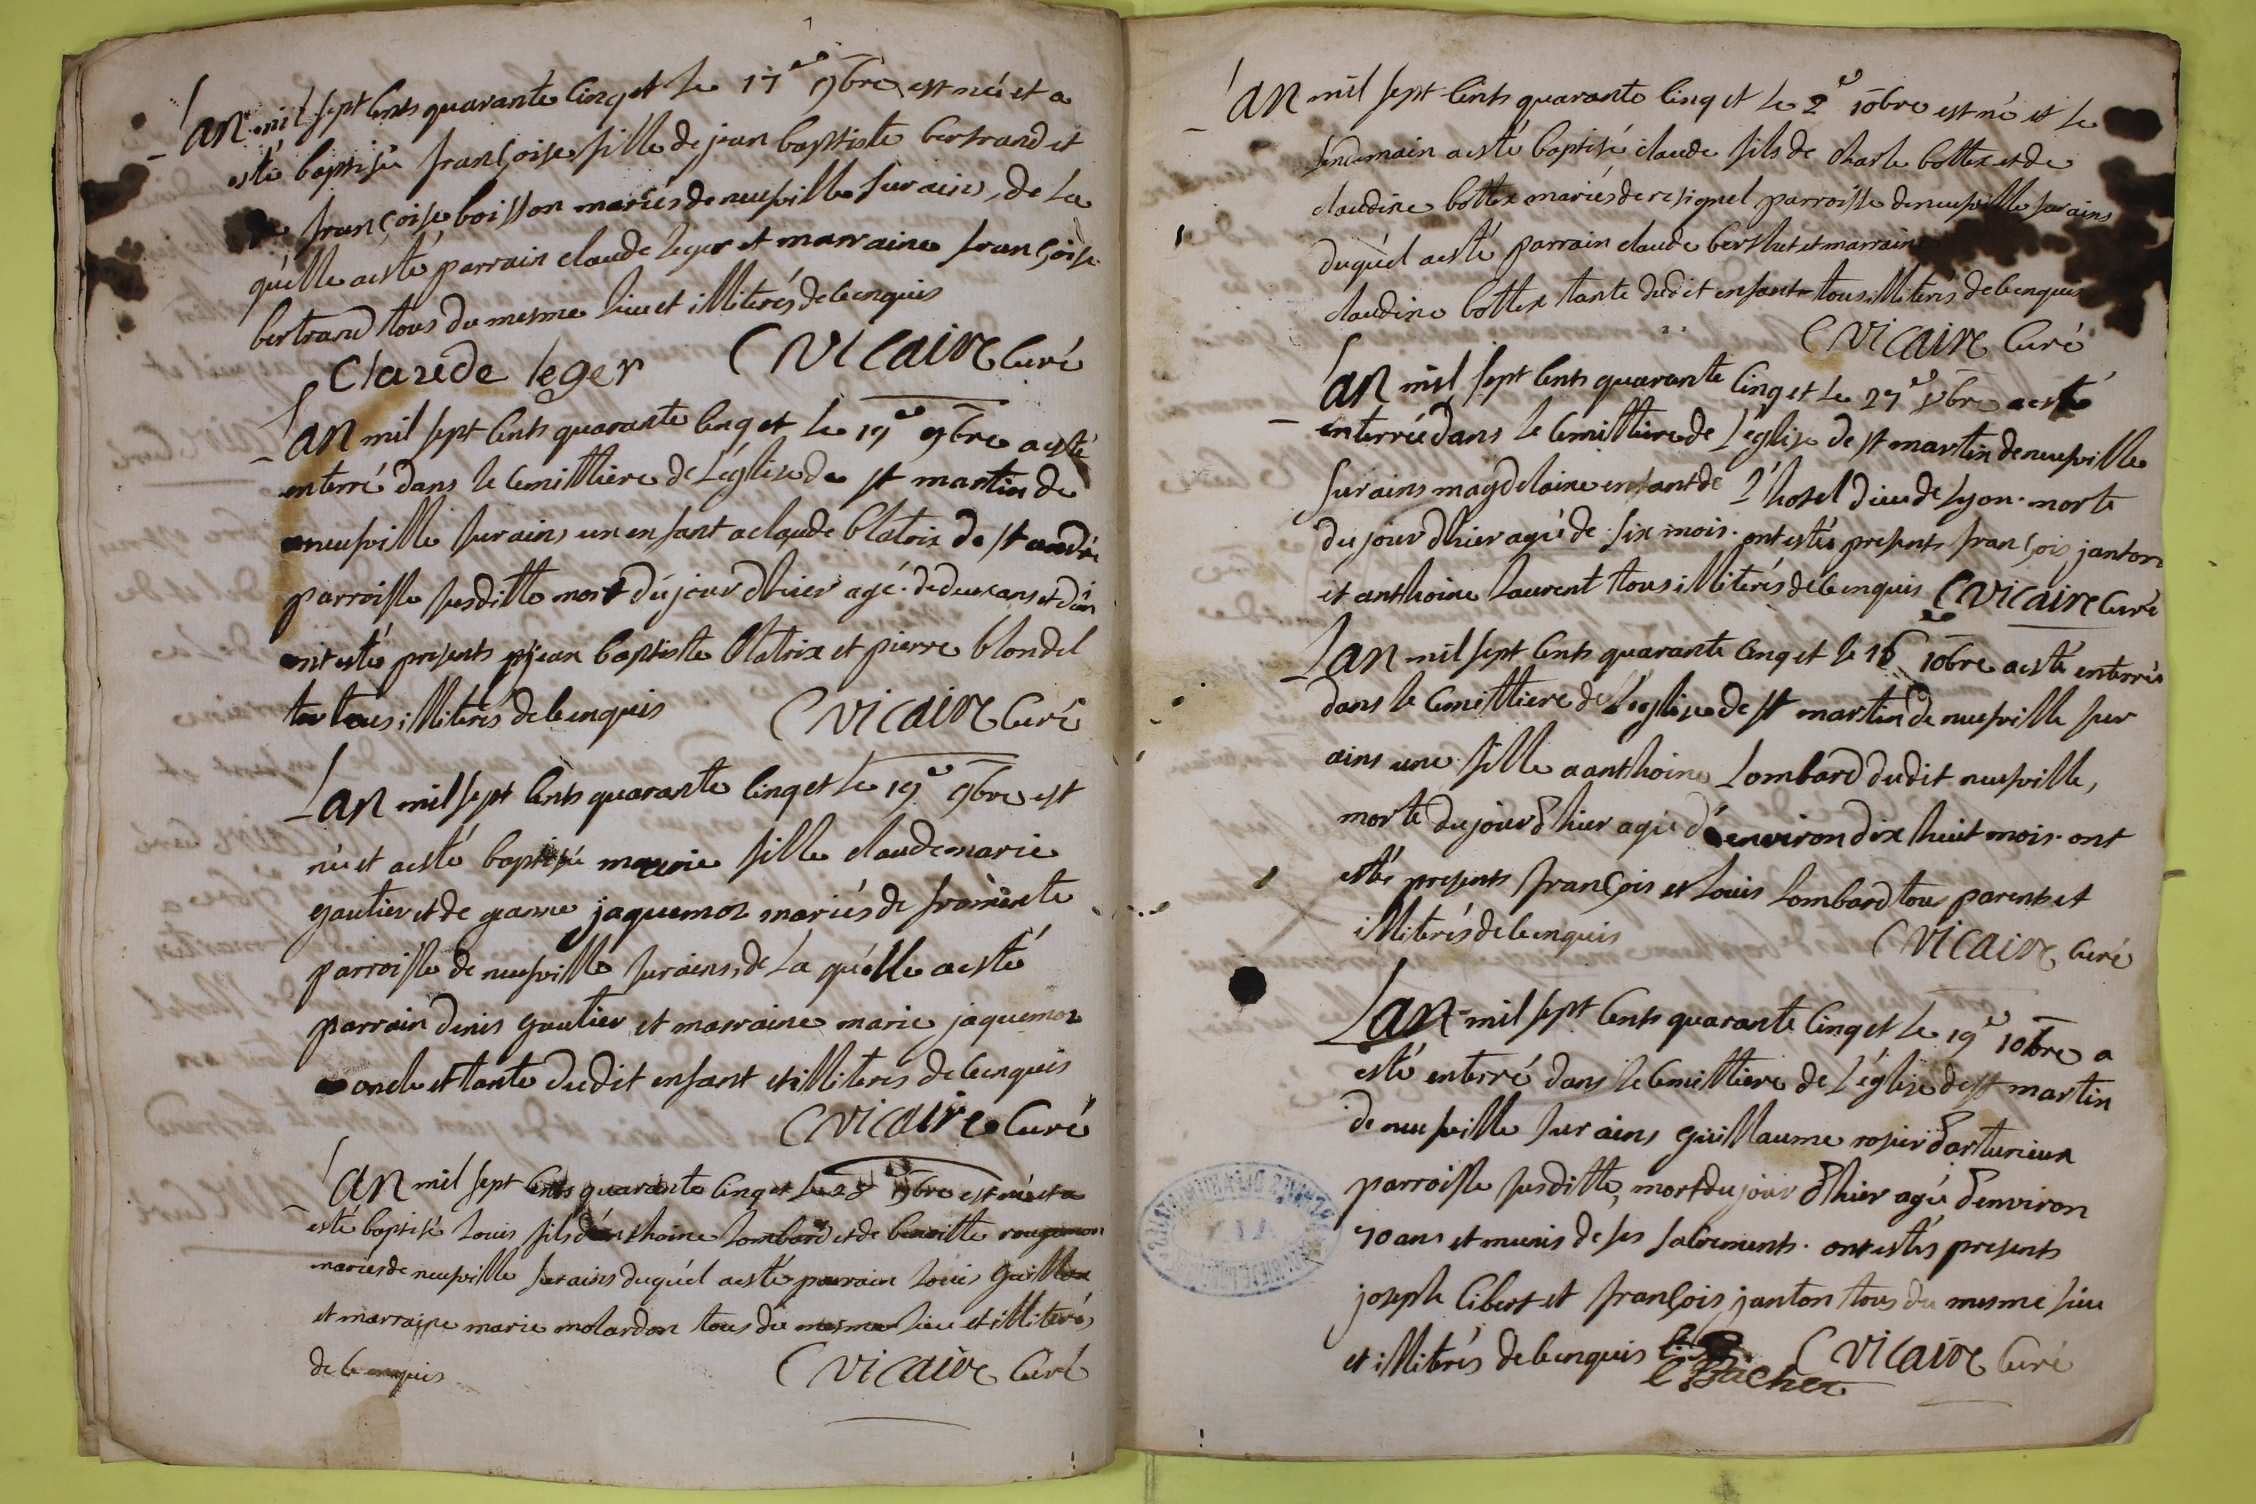 Lan mil sept cents quarante cinq et le 17e 9bre est née et a
esté baptisée françoise fille de jean baptiste bertrand et
de françoise boisson mariés de neufville sur ains, de la
quelle a esté parrain claude leger et marraine françoise
bertrand tous du mesme lieu et illiterés de ce enquis
Claude leger C Vicaire Curé
Lan mil sept cents quarante cinq et le 19e 9bre a esté
enterré dans le cemittiere de l'églize de st martin de
neufville sur ains un enfant a claude blatrix de st andré
parroisse susditte mort du jour d'hier agé de deux ans et d'un
ont estés presents jean baptiste blatrix et pierre blondel
tous illiterés de ce enquis C Vicaire Curé
Lan mil sept cents quarante cinq et le 19e 9bre est
née et a esté baptisée marie fille claude marie
gautier et de jeanne jaquemoz mariés de fromente
parroisse de neufville sur ains, de la quelle a esté
parrain denis gautier et marraine marie jaquemoz
oncle et tante dudit enfant et illiteres de ce enquis
C Vicaire Curé
Lan mil sept cents quarante cinq et le 28 9bre est né et a
esté baptisé louis fils d'anthoine lombard et de benoitte rougemon
mariés de neufville sur ains duquél a esté parrain louis guillon
et marraine marie molardon tous du mesme lieu et illiterés
de ce enquis C Vicaire Curé
Lan mil sept cents quarante cinq et le 2e 10bre est né et le
lendemain a esté baptisé claude fils de charle bottex et de
claudine bottex mariés de resignel parroisse de neufville sur ains
duquél a esté parrain claude berthet et marraine
claudine bottex tante dudit enfant tous illiterés de ce enquis
C Vicaire Curé
Lan mil sept cents quarante cinq et le 27e 9bre a esté
enterrée dans le cemittiere de l'églize de st martin de neufville
sur ains magdelaine enfant de l'hotel dieu de lyon morte
du jour d'hier agée de six mois ont estés presents françois janton
et anthoine laurent tous illiterés de ce enquis C Vicaire Curé
Lan mil sept cents quarante cinq et le 16e 10bre a esté enterrée
dans le cemittiere de l'églize de st martin de neufville sur
ains une fille a anthoine Lombard dudit neufville,
morte du jour d'hier agée d'environ dix huit mois ont
estés presents françois et louis lombard tous parents et
illiterés de ce enquis C Vicaire Curé
Lan mil sept cents quarante cinq et le 19e 10bre a
esté enterré dans le cemittiere de l'églize de st martin
de neufville sur ains guillaume rosier d'arturieux
parroisse susditte, mort du jour d'hier agé d'environ
70 ans et munis de ses sacrements ont estés presents
joseph libert et françois janton tous du mesme lieu
et illiterés de ce enquis C Vicaire Curé